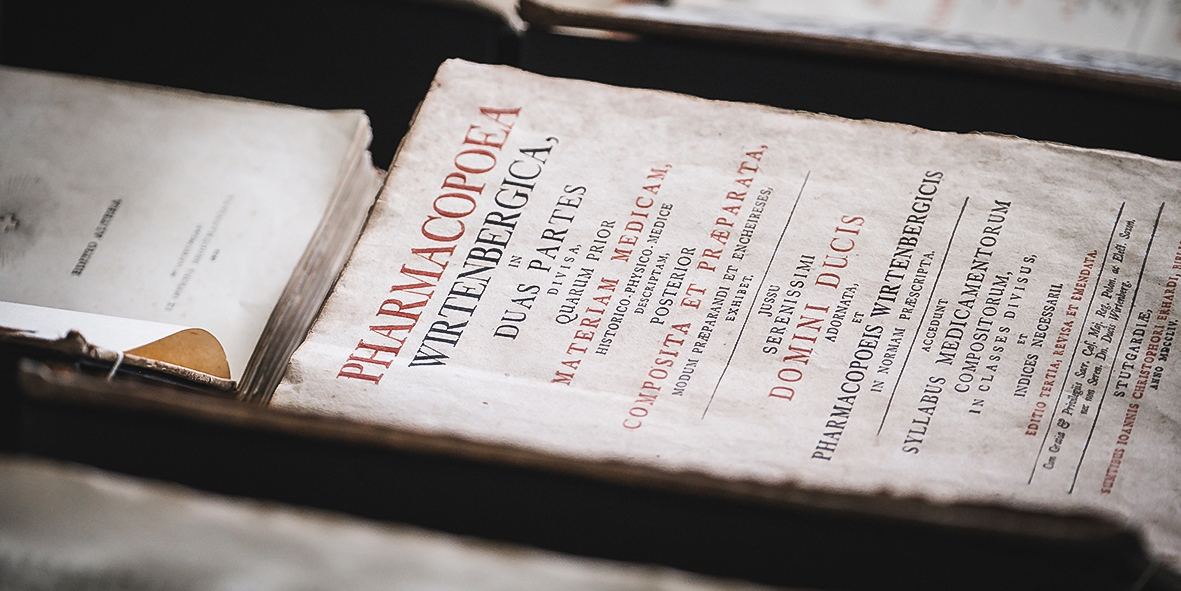 PHARMACOPOEA
WIRTENBERGICA,
IN
DUAS PARTES
DIVISA,
QUARUM PRIOR
MATERIAM MEDICAM,
HISTORICO-PHYSICO-MEDICE
DESCRIPTAM,
POSTERIOR
COMPOSITA ET PRÆPARATA,
MODUM PRÆPARANDI ET ENCHEIRESES,
EXHIBET.
JUSSU
SERENISSIMI
DOMINI DUCIS
ADORNATA,
ET
PHARMACOPOEIS WIRTENBERGICIS
IN NORMAM PRÆSCRIPTA.
ACCEDUNT
SYLLABUS MEDICAMENTORUM
COMPOSITORUM,
IN CLASSES DIVISUS,
ET
INDICES NECESSARII
EDITIO TERTIA REVISA ET EMENDATA.
Cum Gratia & Privilegiis Sacr. Cæs. Maj. Reg. Polon. ac Elect. Saxon.
nec non Seren. Dn. Ducis Wirtenberg.
STUTGARDIÆ,
SUMTIBUS IOANNIS CHRISTOPHORI ERHARDI,
ANNO MDCCLIV.